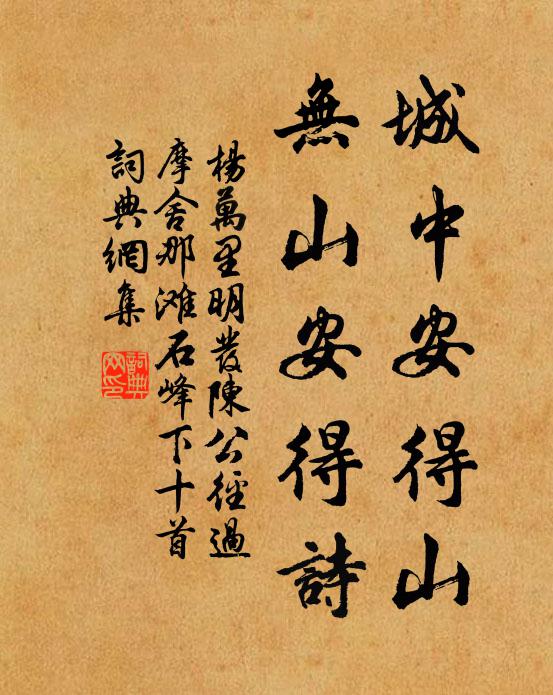 城中安得山
無山安得詩
楊萬里明發陳公徑過
摩舍那滩石峰下十首
詞典網集
詞典網印